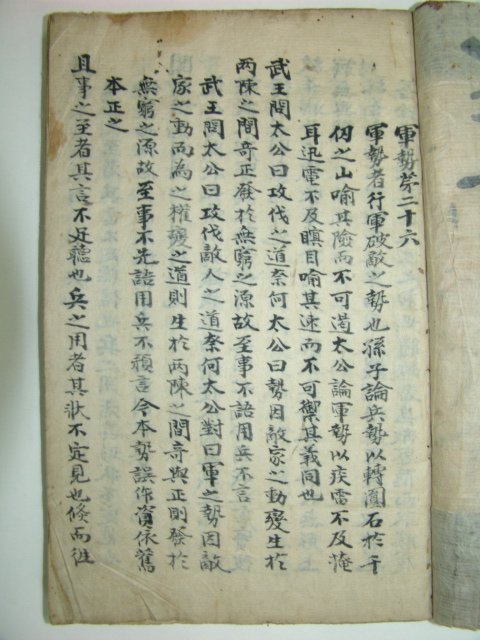 軍勢苐二十六
軍勢者行軍破敵之勢也孫子論兵勢以轉圓石於千
仞之山喻其險而不可遏太公論軍勢以疾雷不及掩
耳迅電不及瞑目喻其速而不可禦其義同也
武王問太公曰攻伐之道奈何太公曰勢因敵家之動變生於
兩陳之間奇正發於無窮之源故至事不語用兵不言
武王問太公曰攻伐敵人之道奈何太公對曰軍之勢因敵
家之動而為之權變之道則生於兩陳之間奇與正則發於
無窮之源故至事不先語用兵不預言今本勢誤作資依舊
本正之
且事之至者其言不足聽也兵之用者其狀不定見也倏而往